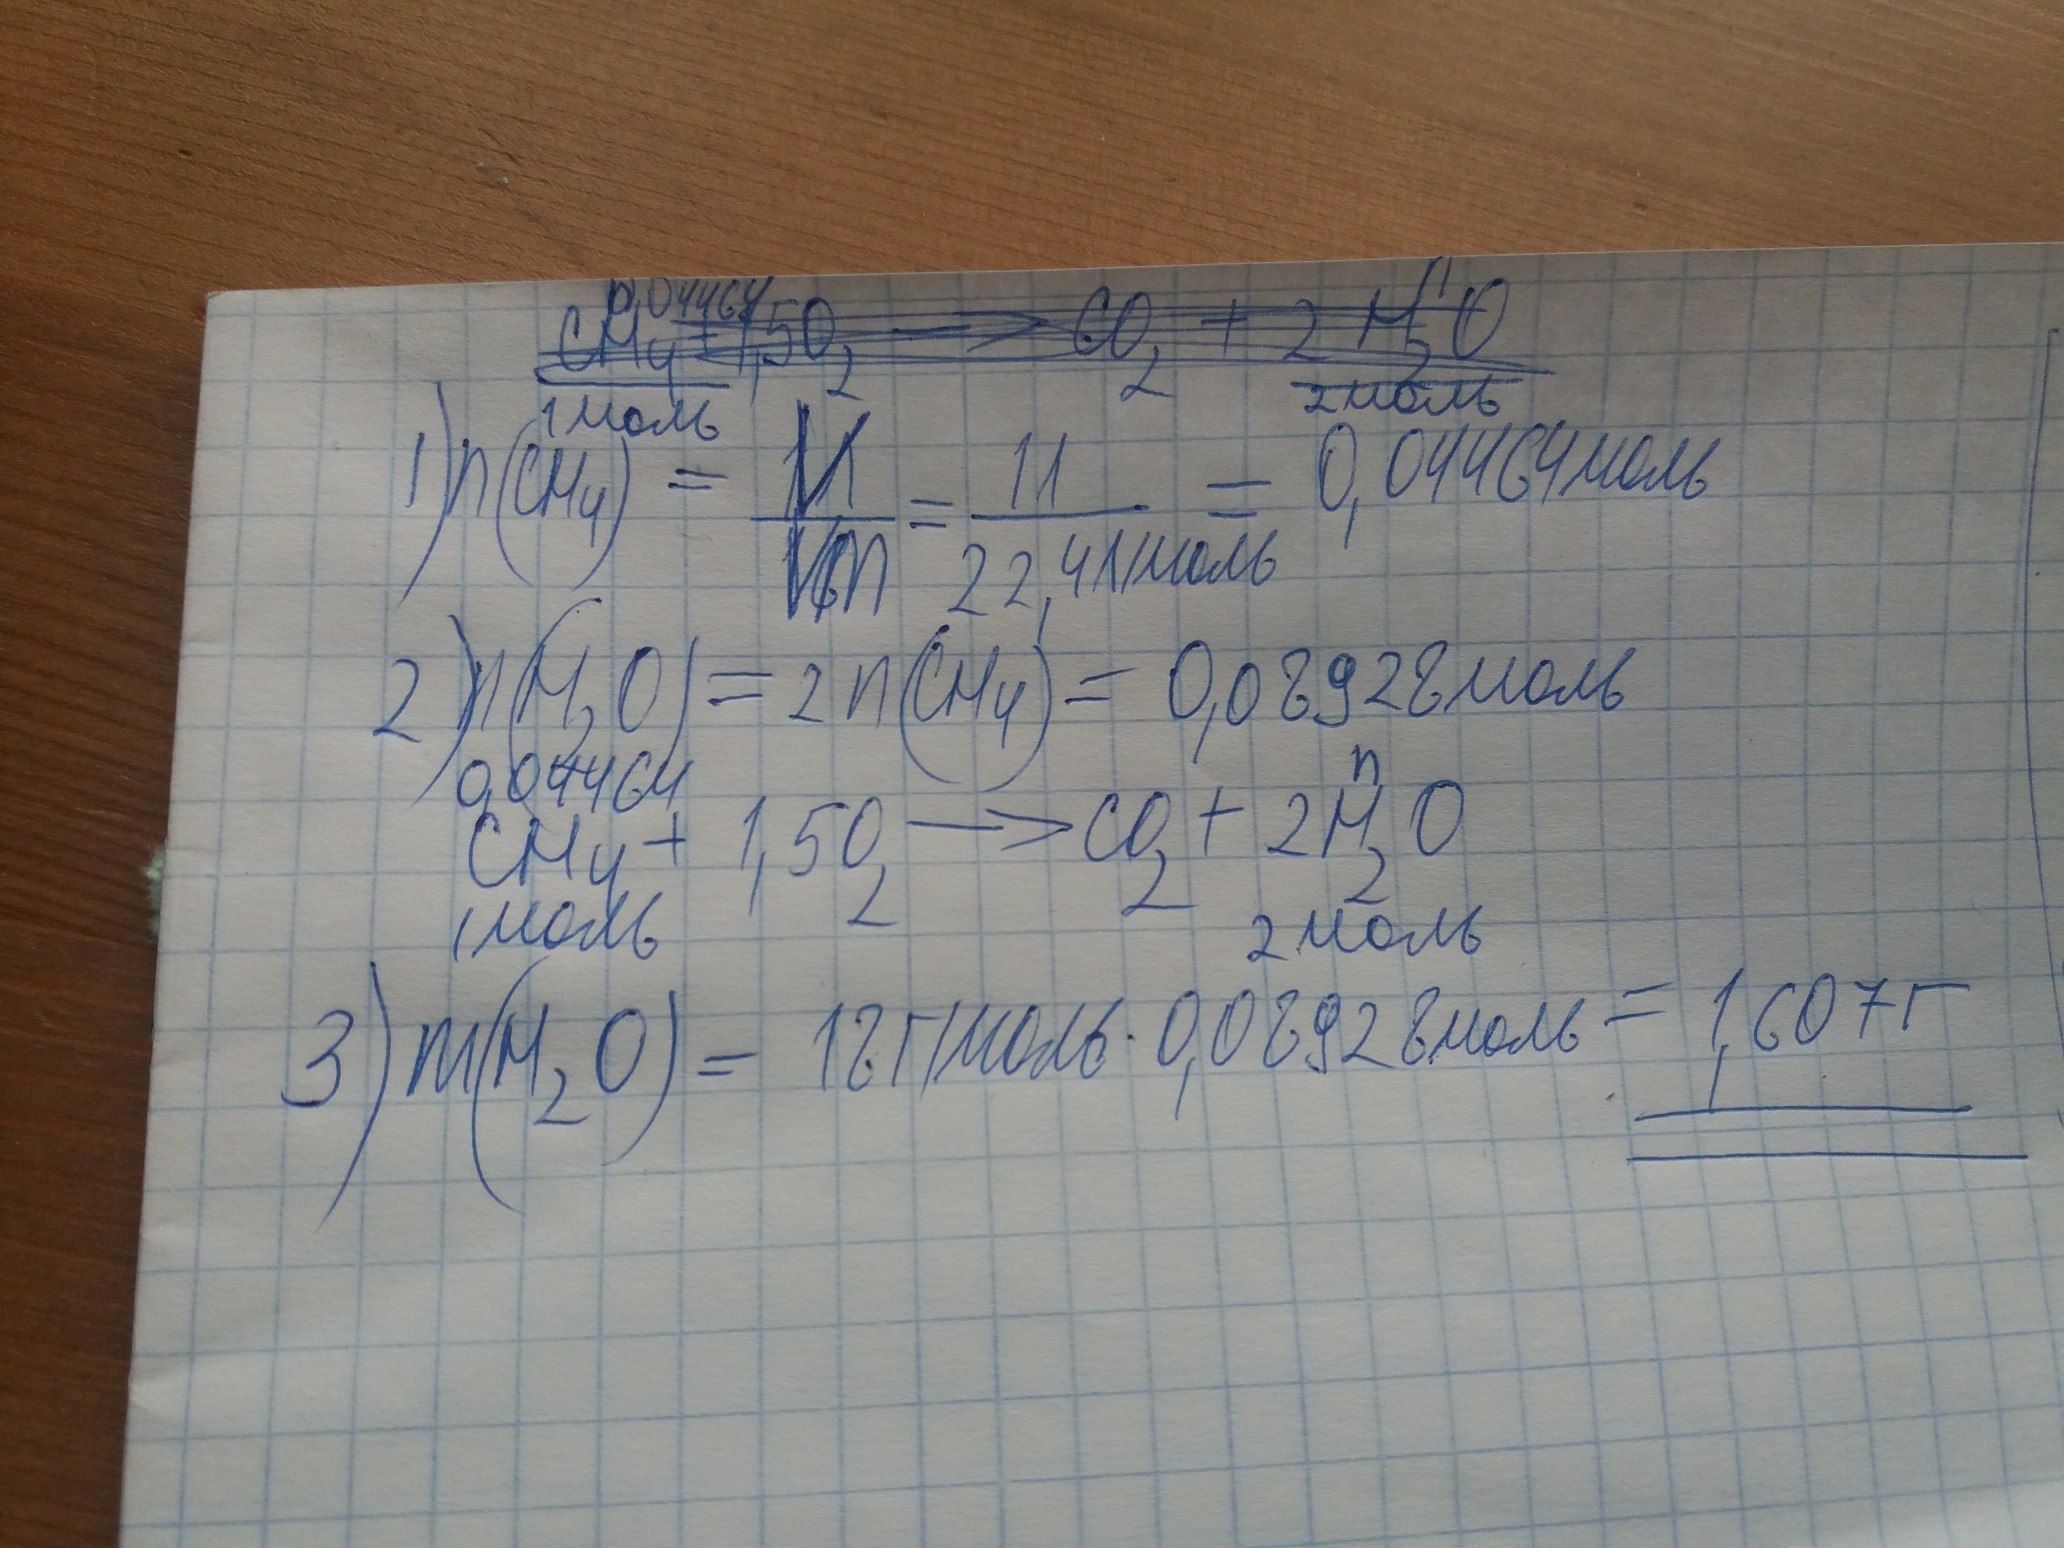 0,04464 n
CH4 + 1,5O2 —> CO2 + 2H2O
1 моль 2 моль
1) n(CH4) = V/Vm = 1л/22,4л/моль = 0,04464 моль
2) n(H2O) = 2n(CH4) = 0,08928 моль
0,04464 n
CH4 + 1,5O2 —> CO2 + 2H2O
1 моль 2 моль
3) m(H2O) = 18г/моль · 0,08928 моль = 1,607г